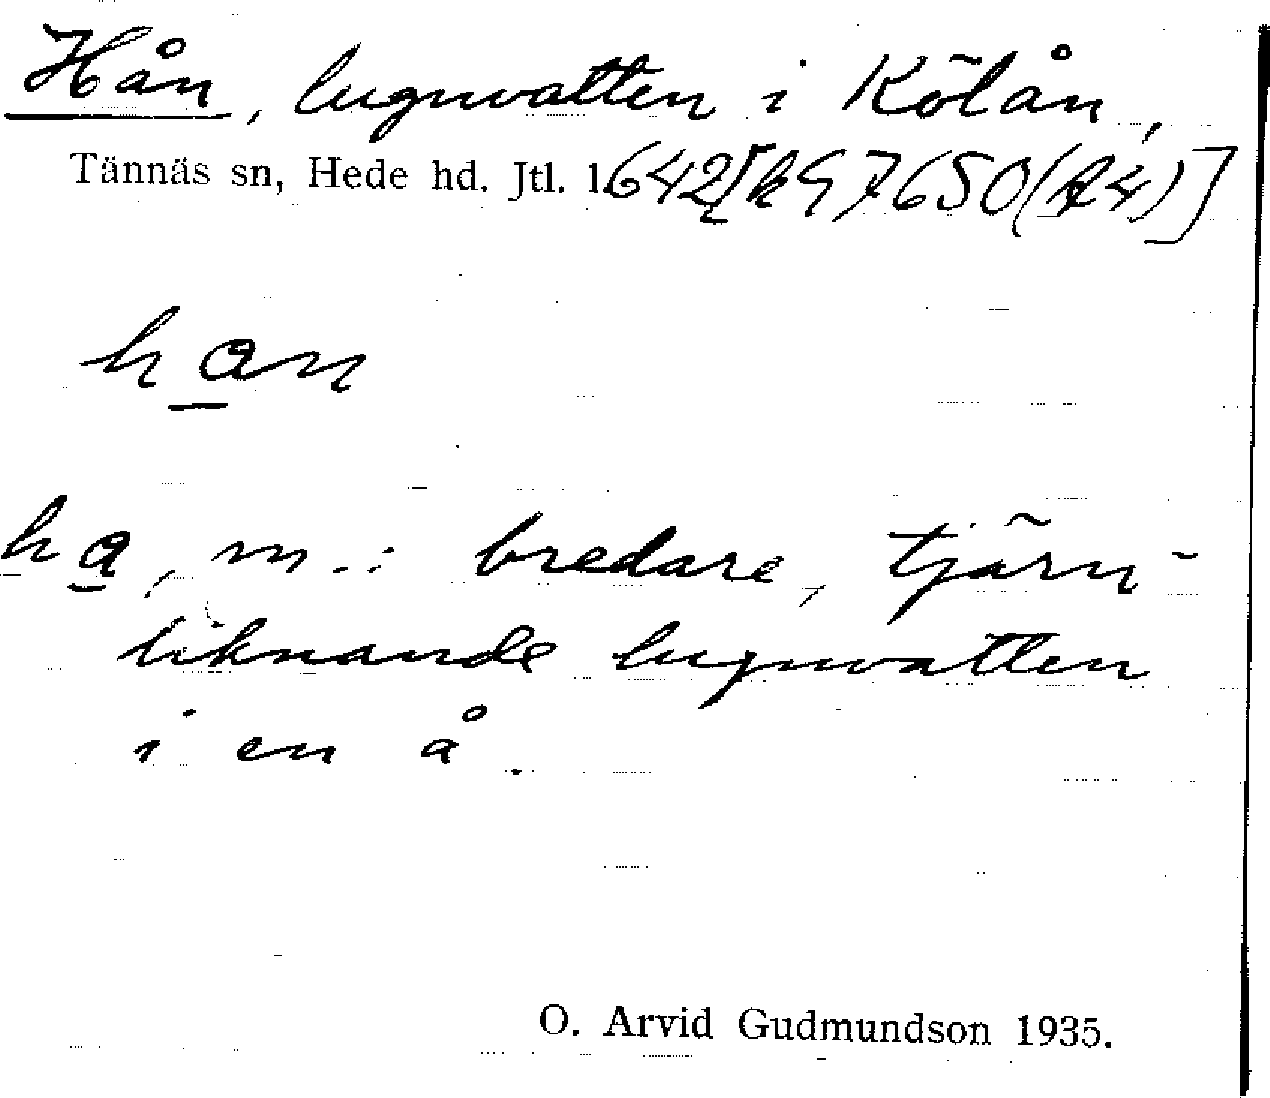 Hån, lugnvatten i Kölån,
Tännäs sn, Hede hd. Jtl. l. 642 [k 97650 (A4)]
han
ha, m.: bredare, tjärn-
liknande lugnvatten
i en å.
O. Arvid Gudmundson 1935.